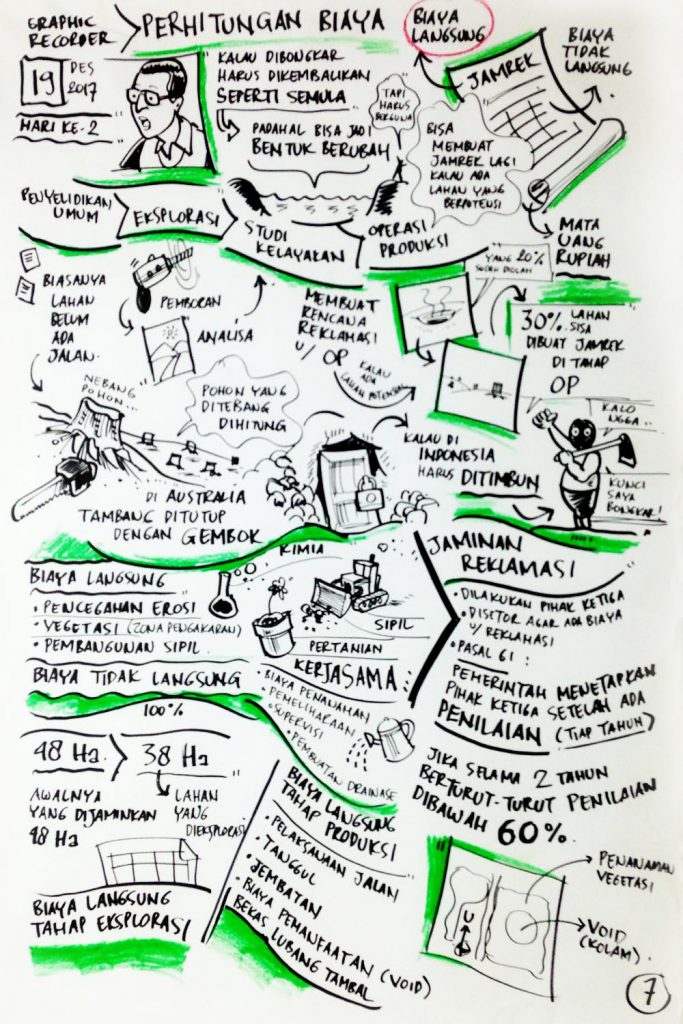 GRAPHIC
RECORDER
PERHITUNGAN BIAYA
BIAYA
LANGSUNG
BIAYA
TIDAK
LANGSUNG
JAMREK
19 DES
2017
HARI KE-2
KALAU DIBONGKAR
HARUS DIKEMBALIKAN
SEPERTI SEMULA
PADAHAL BISA JADI
BENTUK BERUBAH
TAPI
HARUS
BERGUNA
BISA
MEMBUAT
JAMREK LAGI
KALAU ADA
LAHAN YANG
BERPOTENSI
MATA
UANG
RUPIAH
PENYELIDIKAN
UMUM
EKSPLORASI
STUDI
KELAYAKAN
OPERASI
PRODUKSI
BIASANYA
LAHAN
BELUM
ADA
JALAN.
PEMBORAN
ANALISA
MEMBUAT
RENCANA
REKLAMASI
U/ OP
KALAU
ADA
LAHAN POTENSIAL
YANG 20%
SUDAH DIOLAH
30% LAHAN
SISA
DIBUAT JAMREK
DI TAHAP
OP
NEBANG
POHON...
POHON YANG
DITEBANG
DIHITUNG
DI AUSTRALIA
TAMBANG DITUTUP
DENGAN GEMBOK
KALAU DI
INDONESIA
HARUS DITIMBUN
KALO
NGGA..
KUNCI
SAYA
BONGKAR!
BIAYA LANGSUNG
• PENCEGAHAN EROSI
• VEGETASI (ZONA PENGAKARAN)
• PEMBANGUNAN SIPIL
KIMIA
SIPIL
PERTANIAN
KERJASAMA
BIAYA TIDAK LANGSUNG
100%
• BIAYA PENANAMAN
• PEMELIHARAAN
• SUPERVISI
• PEMBUATAN DRAINASE
JAMINAN
REKLAMASI
• DILAKUKAN PIHAK KETIGA
• DISETOR AGAR ADA BIAYA
U/ REKLAMASI
• PASAL 61 :
PEMERINTAH MENETAPKAN
PIHAK KETIGA SETELAH ADA
PENILAIAN (TIAP TAHUN)
JIKA SELAMA 2 TAHUN
BERTURUT-TURUT PENILAIAN
DIBAWAH 60%.
48 Ha. > 38 Ha
AWALNYA
YANG DIJAMINKAN
48 Ha
LAHAN
YANG
DIEKSPLORASI
BIAYA LANGSUNG
TAHAP EKSPLORASI
BIAYA LANGSUNG
TAHAP PRODUKSI
• PELAKSANAAN JALAN
• TANGGUL
• JEMBATAN
• BIAYA PEMANFAATAN (VOID)
BEKAS LUBANG TAMBAL
PENANAMAN
VEGETASI
VOID
(KOLAM).
U
7